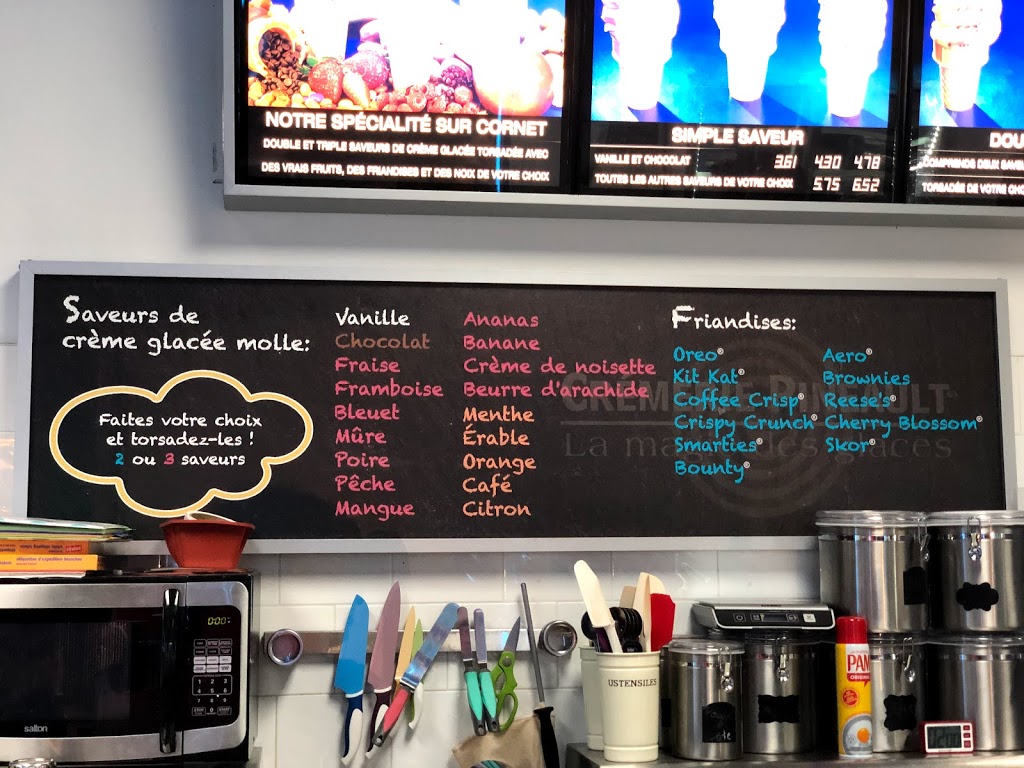 NOTRE SPÉCIALITÉ SUR CORNET
DOUBLE ET TRIPLE SAVEURS DE CRÈME GLACÉE TORSADÉE AVEC
DES VRAIS FRUITS, DES FRIANDISES ET DES NOIX DE VOTRE CHOIX
SIMPLE SAVEUR
VANILLE ET CHOCOLAT 3.61 4.30 4.78
TOUTES LES AUTRES SAVEURS DE VOTRE CHOIX 5.75 6.52
COMPRENDS DEUX
TORSADÉE DE VOTRE
Saveurs de
crème glacée molle:
Faites votre choix
et torsadez-les !
2 ou 3 saveurs
Vanille
Chocolat
Fraise
Framboise
Bleuet
Mûre
Poire
Pêche
Mangue
Ananas
Banane
Crème de noisette
Beurre d'arachide
Menthe
Érable
Orange
Café
Citron
Friandises:
Oreo®
Kit Kat®
Coffee Crisp®
Crispy Crunch®
Smarties®
Bounty®
Aero®
Brownies
Reese's®
Cherry Blossom®
Skor®
La magie des glaces
0:00
salton
USTENSILES
PAM
ORIGINAL